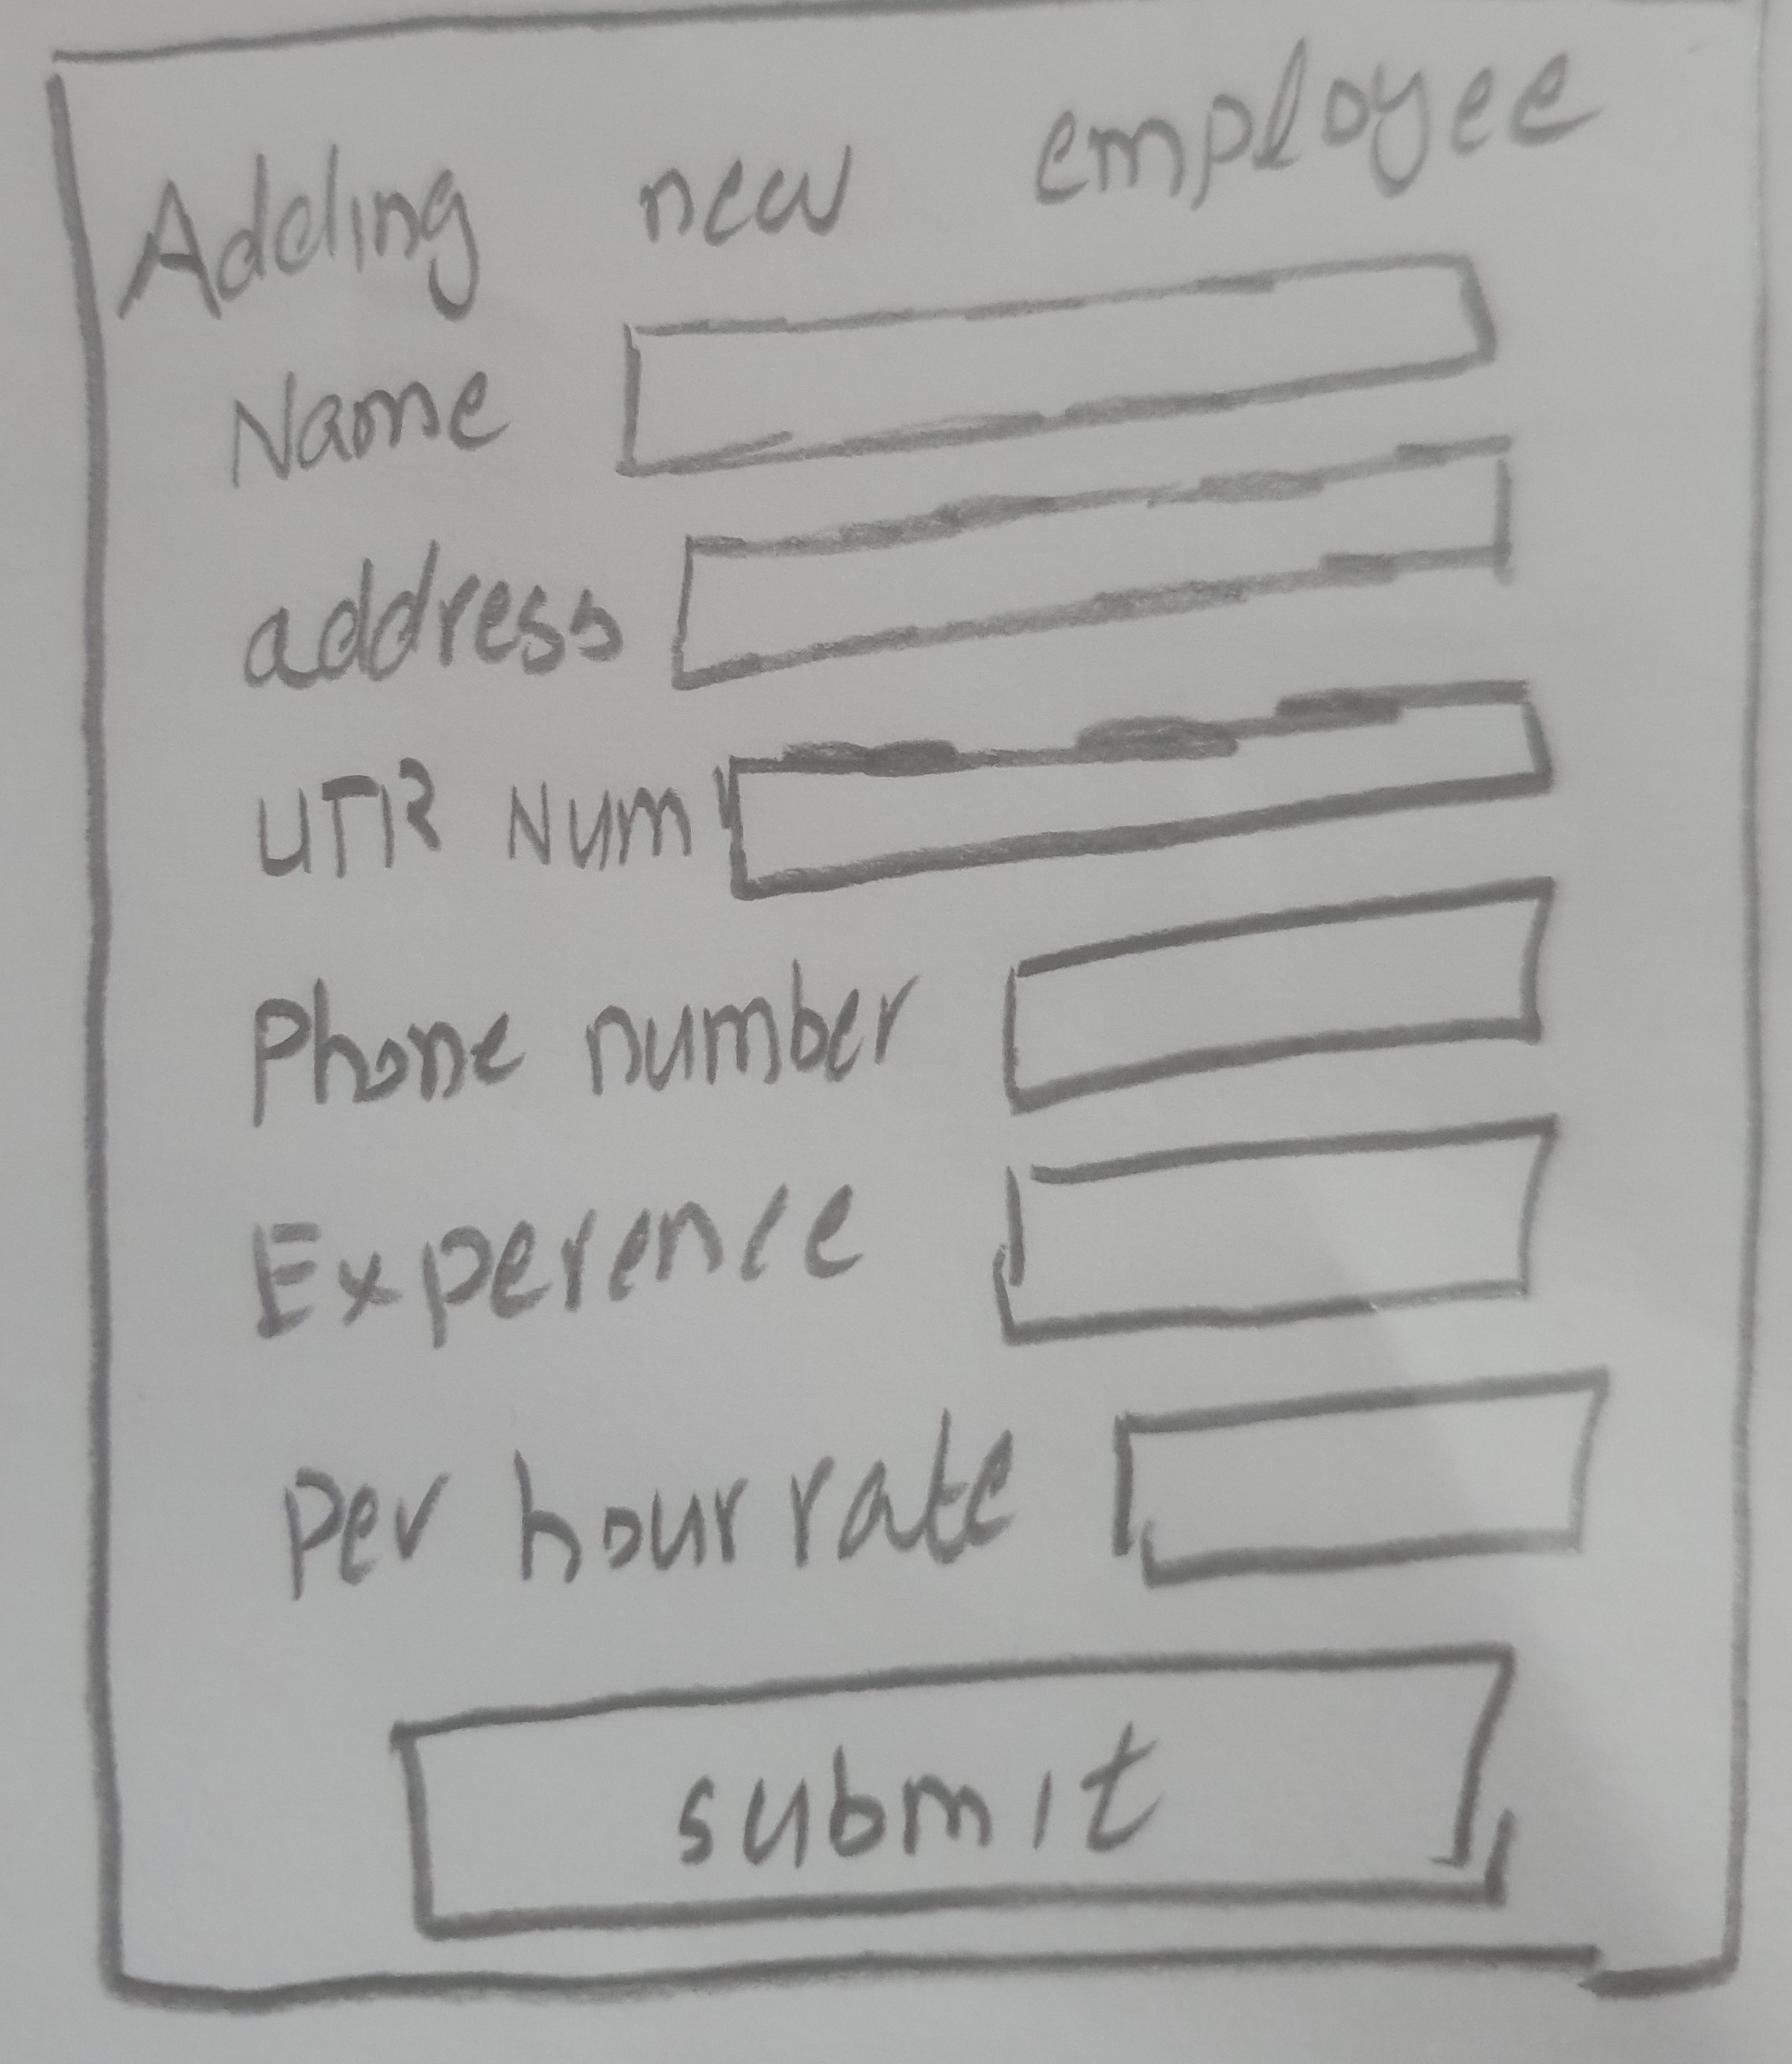 Adding new employee
Name
address
UTR Num
Phone number
Experence
Per hour rate
submit